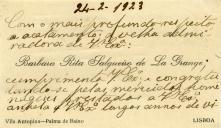 24-2-1923
Com o mais profundo respeito
e acatamento, a velha admi-
radora de V. Exª:
Barbara Rita Salgueiro de La Grange,
cumprimenta V. Exª e congratu-
lando-se pelas merecidas home
nagens prestadas a V. Exª
V. Exª largos annos de vi
Villa Antonina—Palma de Baixo
LISBOA